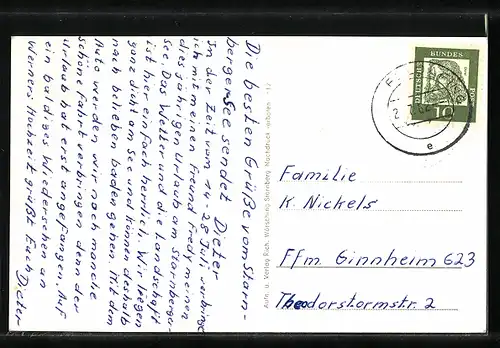 Die besten Grüße vom Starn-
bergerSee sendet Dieter
In der Zeit vom 14-28 Juli verbringe
ich mit meinen Freund Fredy meinen
diesjährigen Urlaub am Starnberger-
See. Das Wetter und die Landschaft
ist hier einfach herrlich. Wir liegen
ganz dicht am See und können deshalb
nach belieben baden gehen. Mit dem
Auto werden wir nach manche
schöne Fahrt verbringen denn der
Urlaub hat erst angefangen. Auf
ein baldiges Wiedersehen an
Werners Hochzeit grüßt Euch Dieter
Aufn. u. Verlag Rich. Wörsching, Starnberg Nachdruck verboten
DEUTSCHE
BUNDES
POST
10
e
Familie
K. Nickels
Ffm. Ginnheim 623
Theodorstormstr. 2